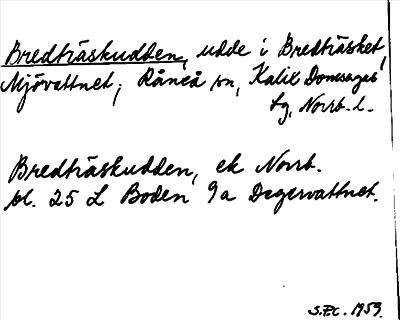 Bredträskudden, udde i Bredträsket,
Mjövattnet, Råneå sn, Kalix Domsagas
tg, Norrb. l.
Bredträskudden, ek Norrb.
bl. 25 L Boden 9a Degervattnet.
S.F.C. 1959.